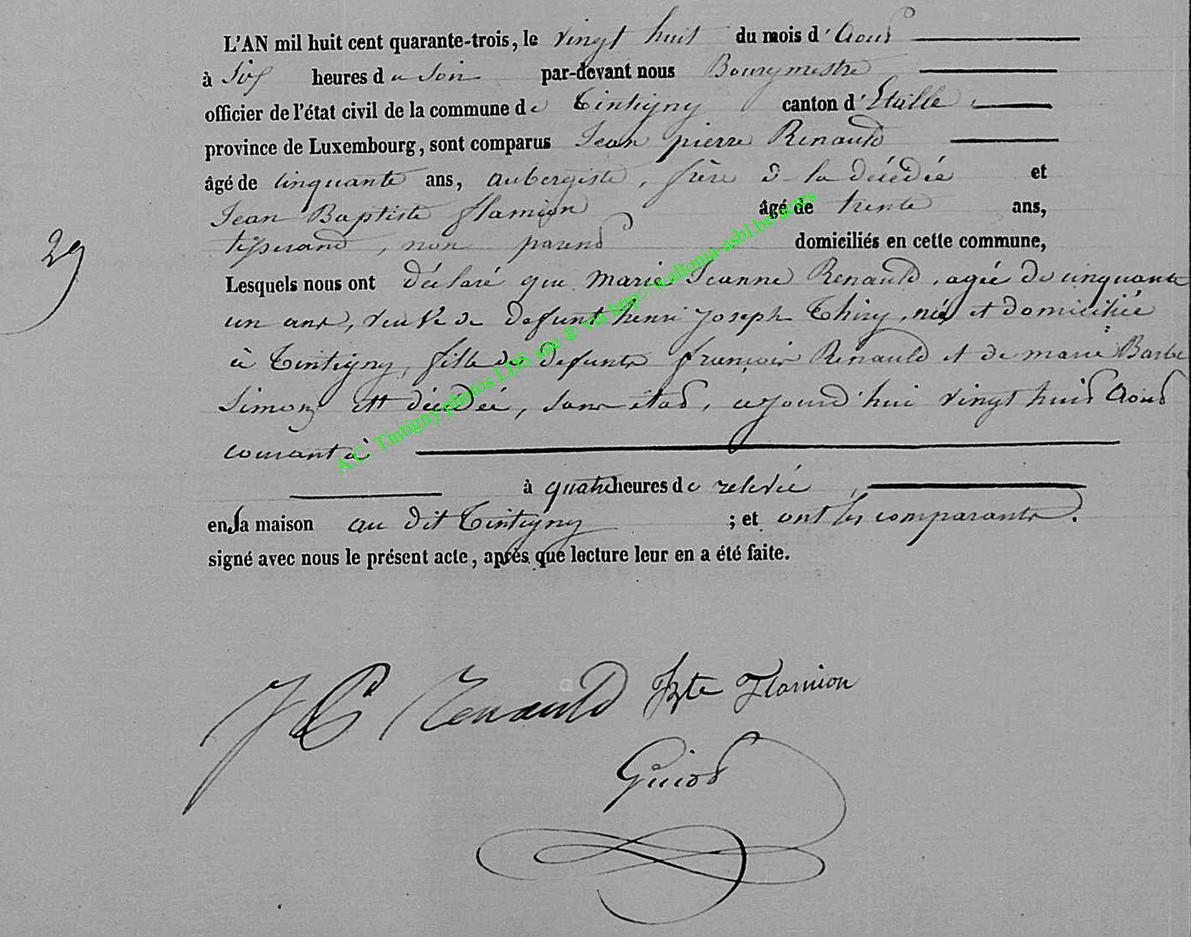 L'AN mil huit cent quarante-trois, le vingt huit du mois d'Aout
à Six heures du Soir par-devant nous Bourgmestre
officier de l'état civil de la commune de Tintigny canton d'Etalle
province de Luxembourg, sont comparus Jean pierre Renauld
âgé de cinquante ans, aubergiste, frère à la décédée et
Jean Baptiste flamion âgé de trente ans,
tisserand, non parent domiciliés en cette commune,
29
Lesquels nous ont déclaré que marie Jeanne Renauld, agée de cinquante
un ans, veuve de defunt henri joseph Thiry, née et domiciliée
à Tintigny, fille de defunts françois Renauld et de marie Barbe
Simon, est décédée, sans état, cejourd'hui vingt huit Aout
courant à
à quatre heures de relevée,
en sa maison au dit Tintigny ; et ont les comparants
signé avec nous le présent acte, après que lecture leur en a été faite.
A.C. Tintigny photos LDS site © via http://wallonia-asbl.be/actes
J P Renauld JBte Flamion
Guiot